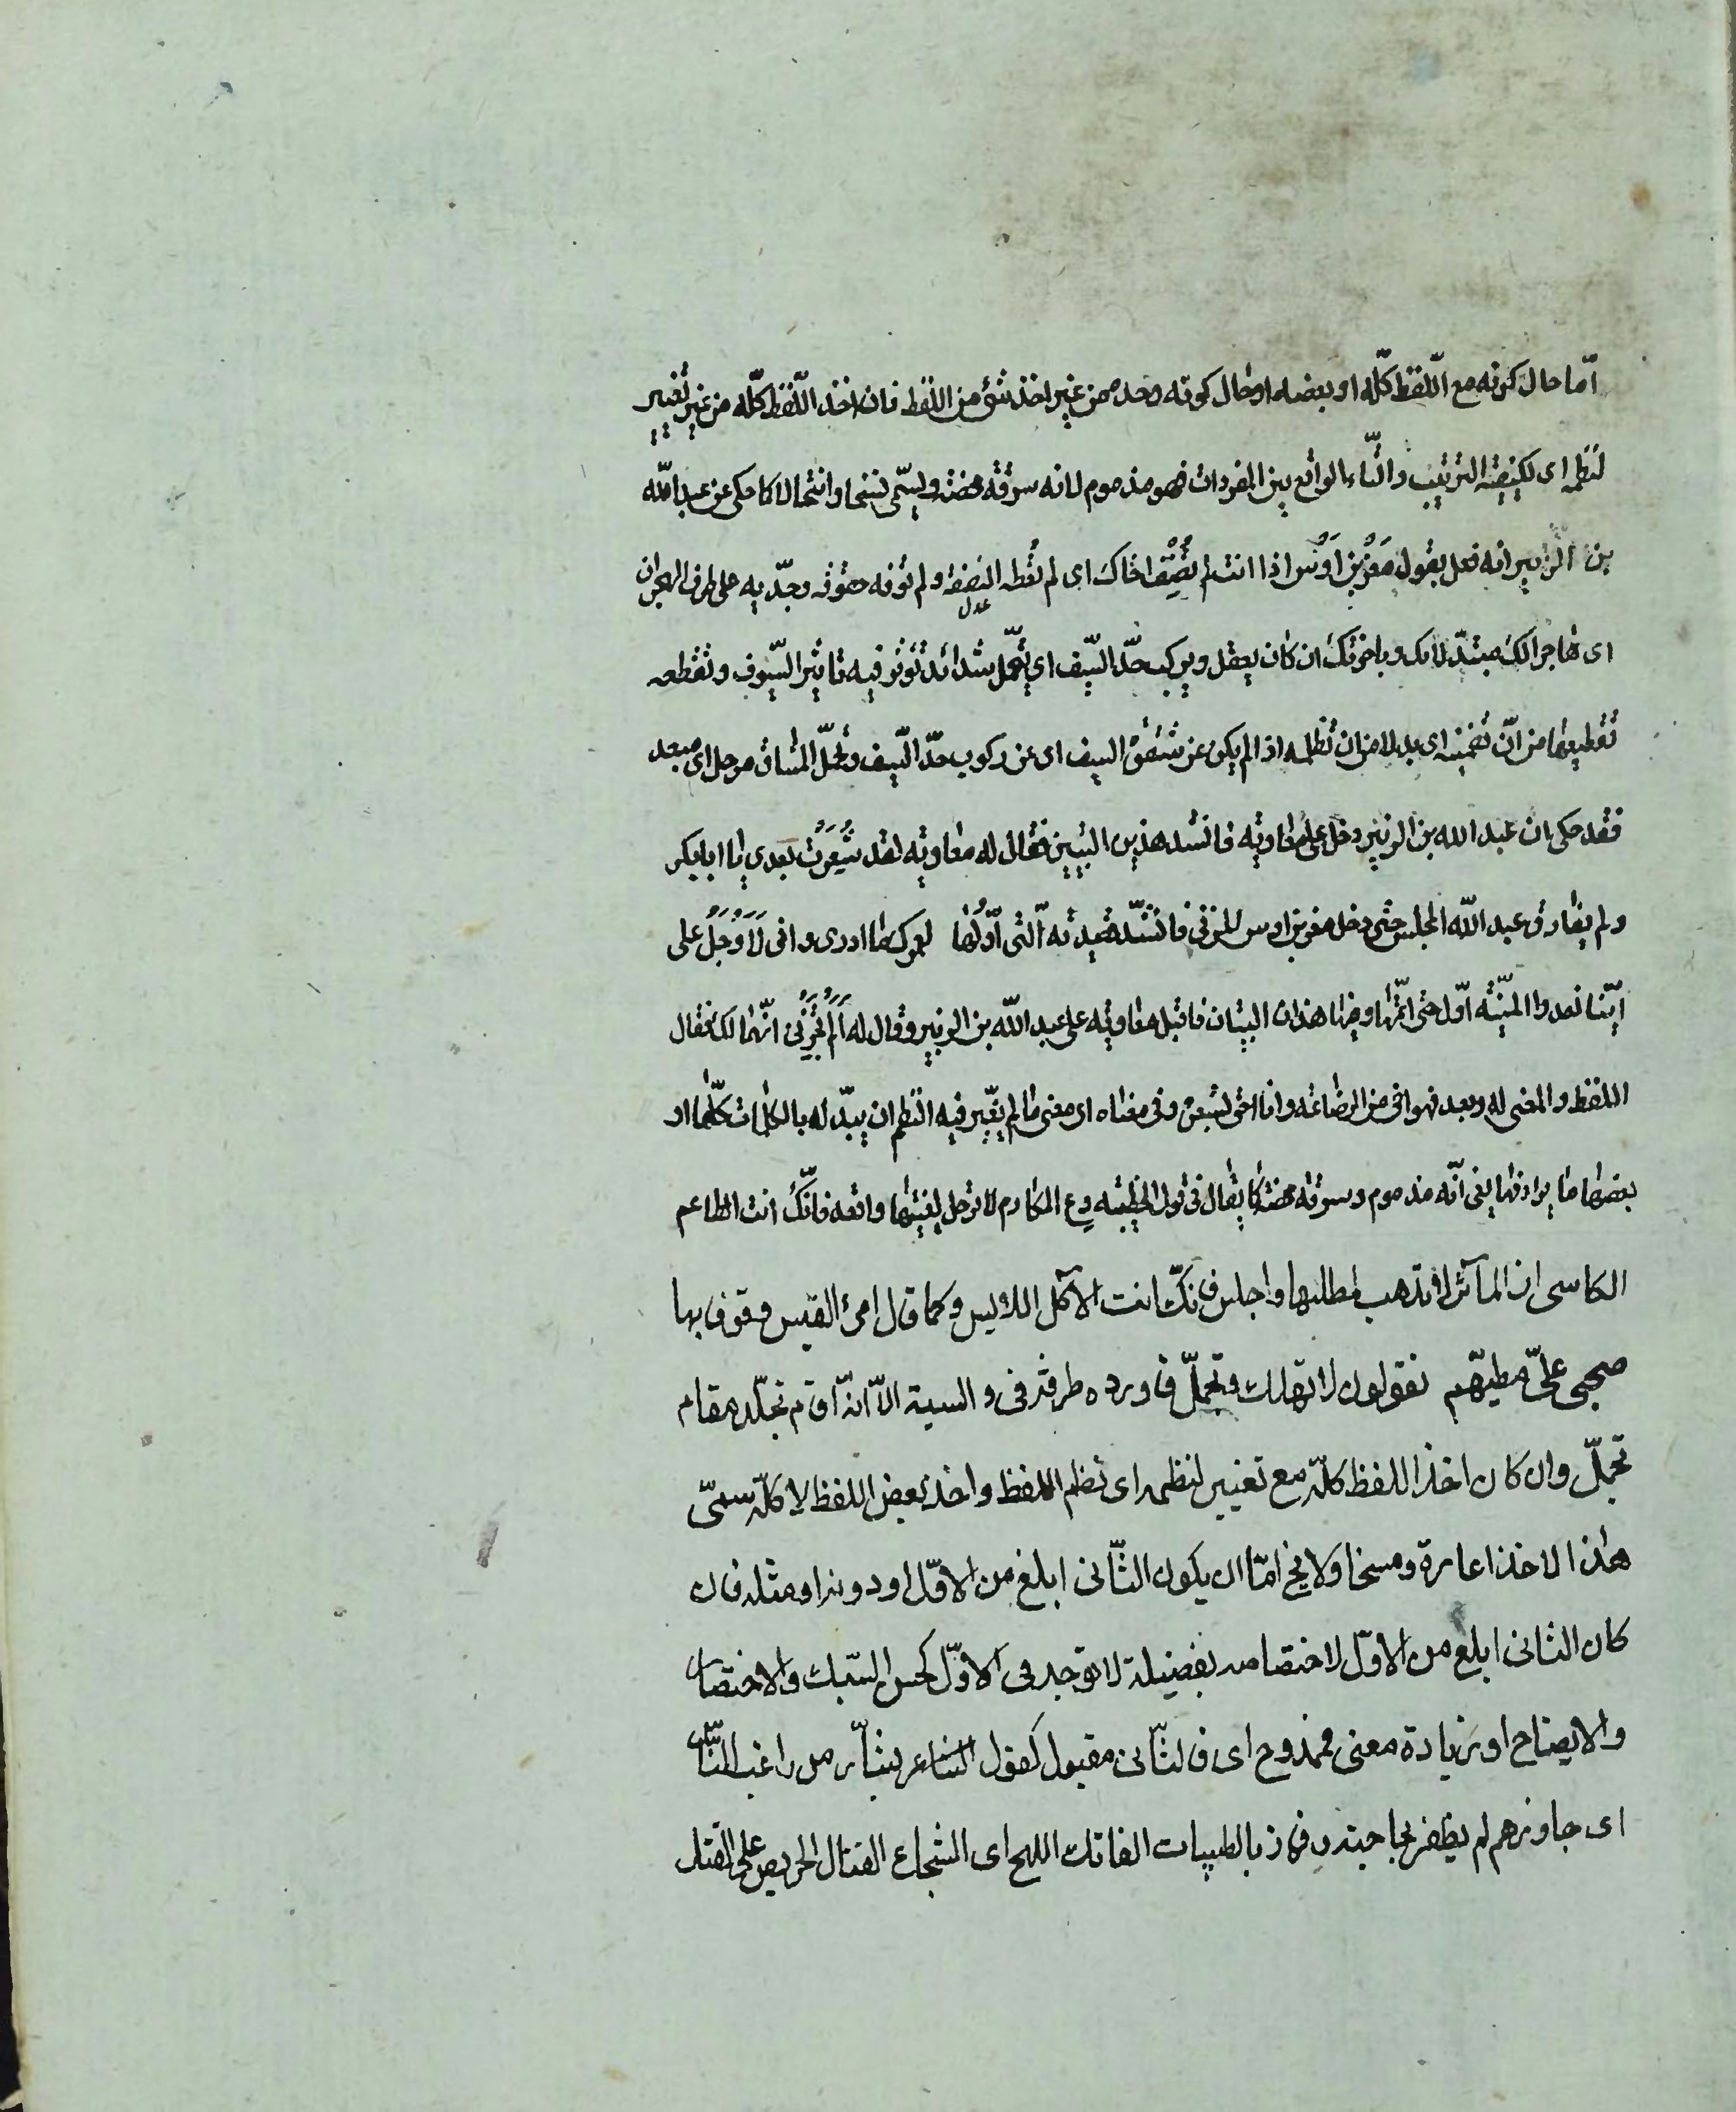 امّا حال كونه مع اللّفظ كلّه او بعضه او حال كونه وحده من غير اخذ شئ من اللفظ فان اخذ اللّفظ كلّه من غير تغيير
لنظمه اى لكيفيّة الترتيب والتّاء الواقع بين المفردات فهو مذموم لانه سرقة محضة ويسمّى نسخا وانتحالا كما حكى عن عبد اللّه
بن الزبير انه فعل بقول معن بن اوس اذا انت لم تنصف اخاك اى لم تعطه النصفة عدل ولم توفه حقوقه وجدّ به على طرف الهجران
اى هاجرا لك مبتدّلا بك وباخوتك ان كان يعقل ويركب حدّ السّيف اى يتحمّل شدائد تؤثر فيه تاثير السّيوف وتقطعه
تقطيعها من انّ تضمينه اى بدلا من ان تظلمه اذا لم يكن عن شفرة السيف اى عن ركوب حدّ السّيف وتحمّل المشاق مرحل اى مبعد
فقد حكى ان عبد الله بن الزبير دخل على معاوية فانشد هذين البيتين فقال له معاوية لقد شعرت بعدى يا ابا بكر
ولم يفارق عبد اللّه المجلس حتى دخل معن بن اوس المزنى فانشد قصيدته الّتى اوّلها لعمرك ما ادرى وانى لاوجل على
ايّنا تعدوا المنيّة اوّل حتى اتمّها وفيها هذان البيتان فاقبل معاوية على عبد اللّه بن الزبير وقال له الم تخبرنى انّهما لك فقال
اللفظ والمعنى له وبعد فهو اخى من الرضاعة وانا احق بشعره وفى معناه اى معنى ما لم يغيّر فيه النّظم ان يبدّل له بالكلمات كلّها او
بعضها ما يرادفها يعنى انّه مذموم وسرقة محضة كما يقال فى قول الحطيئه دع المكارم لا ترحل لبغيتها واقعد فانّك انت الطاعم
الكاسى ان المآثر لا تذهب لمطلبها واجلس فانّك انت الآكل اللابس وكما قال امرئ القيس وقوفا بها
صحبى علىّ مطيّهم نقولون لا تهلك وتجمّل فاورده طرفة فى والسية الاّ انّه اقام تجلّد مقام
تجمّل وان كان اخذ اللفظ كلّه مع تغيير لنظمه اى نظم اللفظ واخذ بعض اللفظ لا كلّه سمىّ
هذا الاخذ اغارة ومسخا ولا يخ امّا ان يكون الثّانى ابلغ من الاوّل او دونه او مثله فان
كان الثانى ابلغ من الاوّل لاختصاصه بفضيلة لا توجد فى الاوّل كحسن السّبك والاختصار
والايضاح او زيادة معنى فممدوح اى فالثّانى مقبول كقول الشاعر بشّار من راغب النّاس
اى جاوزهم لم يظفر بحاجته وفاز بالطيبات الفاتك اللهج اى الشجاع القتال الحريص على القتل